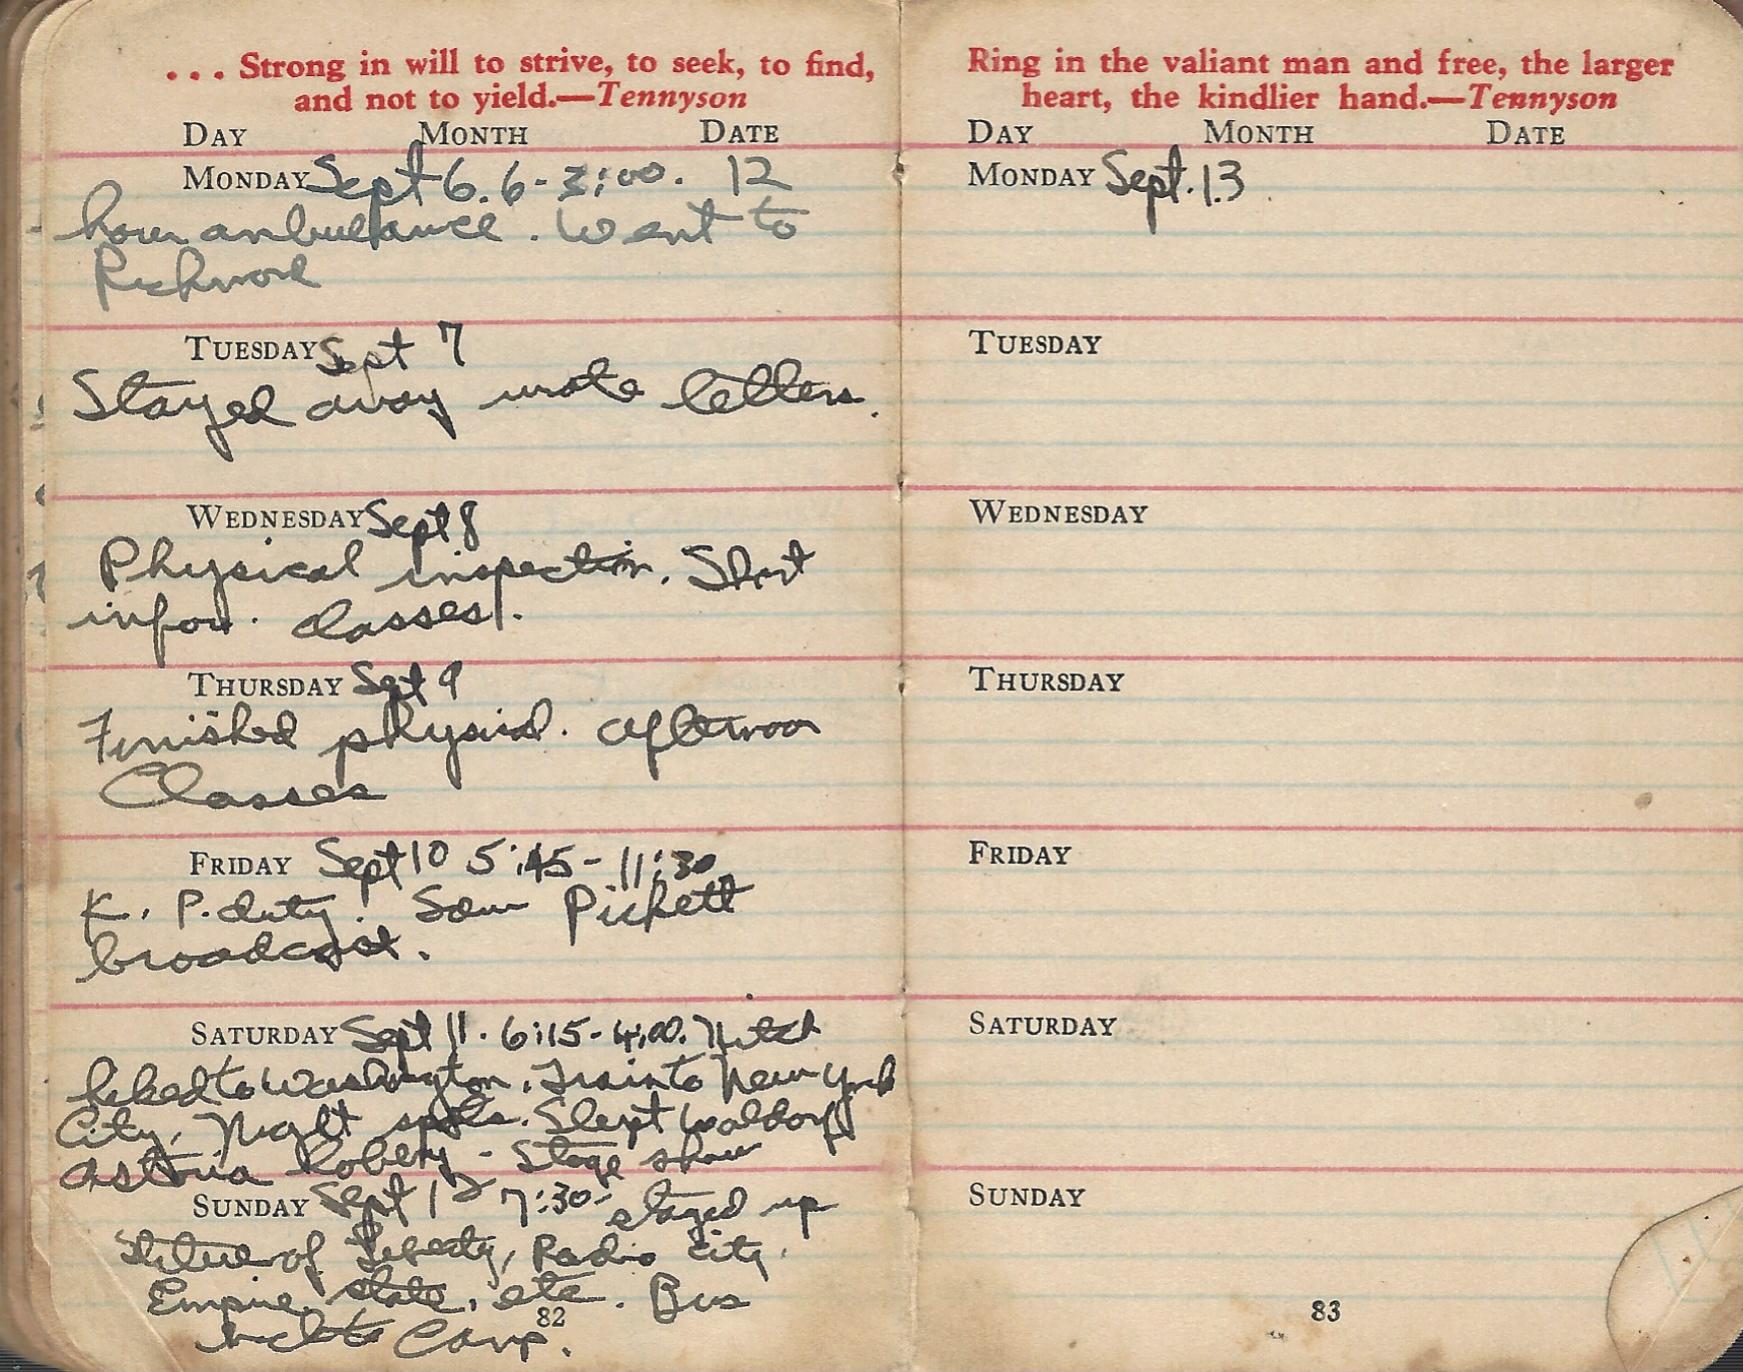 ... Strong in will to strive, to seek, to find,
and not to yield.—Tennyson
DAY MONTH DATE
MONDAY Sept 6. 6-3:00. 12
hour ambulance. Went to
TUESDAY Sept 7
Stayed away wrote letters.
WEDNESDAY Sept 8
Physical inspection. Short
infor. classes.
THURSDAY Sept 9
Finished physical. afternoon
Classes
FRIDAY Sept 10 5:45-11:30
K. P. duty. Saw Pickett
broadcast.
SATURDAY Sept 11. 6:15-4:00. Hitch
hiked to Washington. Train to New York
City. Night spots. Slept Waldorf
Astoria - Stage show
SUNDAY Sept 12 7:30- stayed up
Statue of Liberty, Radio City.
Empire state, etc. Bus
back to Camp.
82
Ring in the valiant man and free, the larger
heart, the kindlier hand.—Tennyson
DAY MONTH DATE
MONDAY Sept. 13
TUESDAY
WEDNESDAY
THURSDAY
FRIDAY
SATURDAY
SUNDAY
83